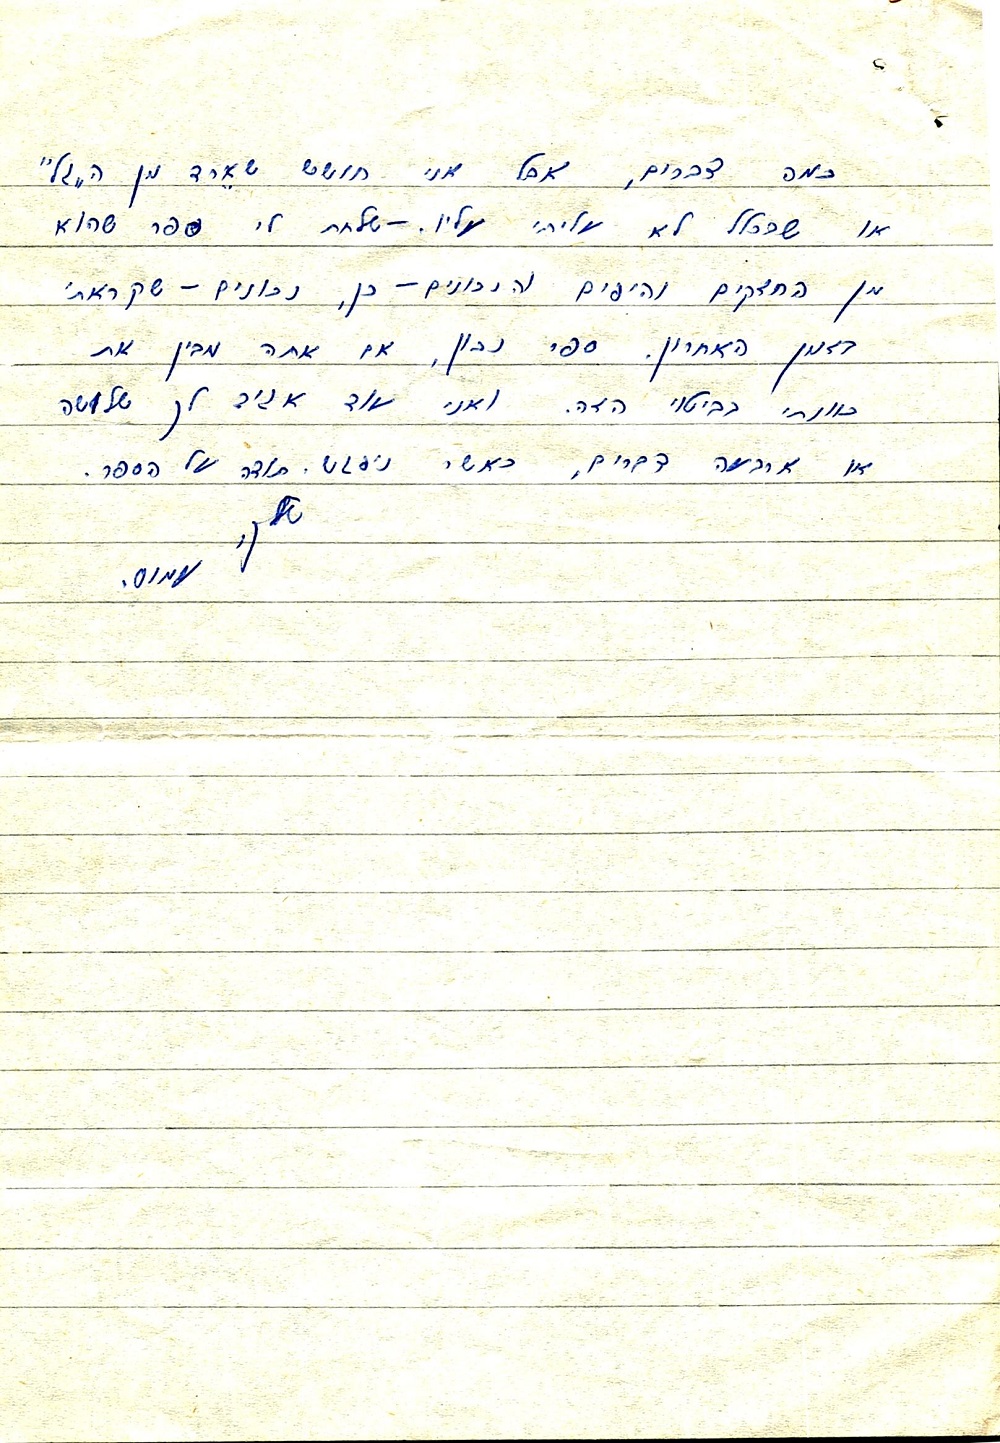 כמה דברים, אבל אני חושש שאֵרד מן ה„גל"
או שבכלל לא עליתי עליו. – שלחת לי ספר שהוא
מן החזקים והיפים והנכונים – כן, נכונים – שקראתי
בזמן האחרון. ספר נכון, אם אתה מבין את
כוונתי בביטוי הזה. ואני עוד אגיד לך שלושה
או ארבעה דברים, כאשר ניפגש. תודה על הספר.
שלך,
עמוס.